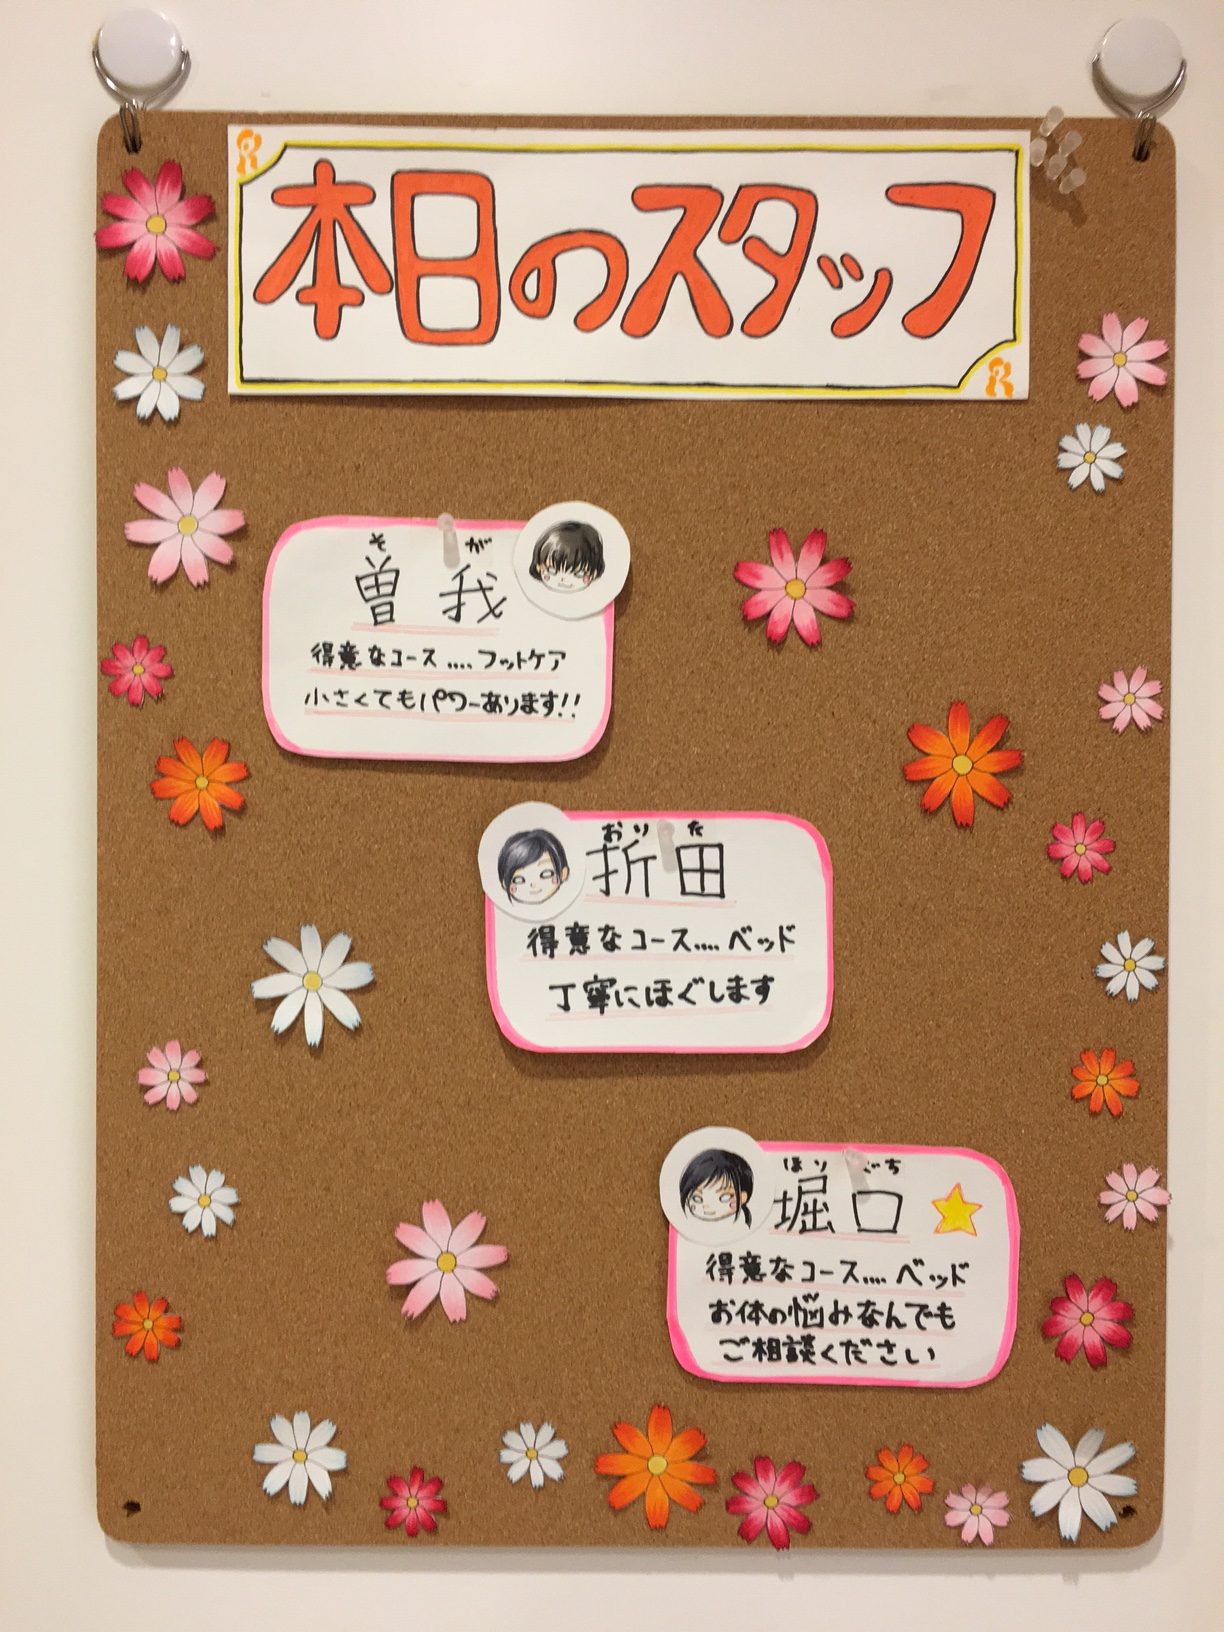 R
本日のスタッフ
R
そ が
曽 我
得意なコース....フットケア
小さくてもパワーあります!!
おり た
折田
得意なコース....ベッド
丁寧にほぐします
ほり ぐち
堀口
得意なコース....ベッド
お体の悩みなんでも
ご相談ください